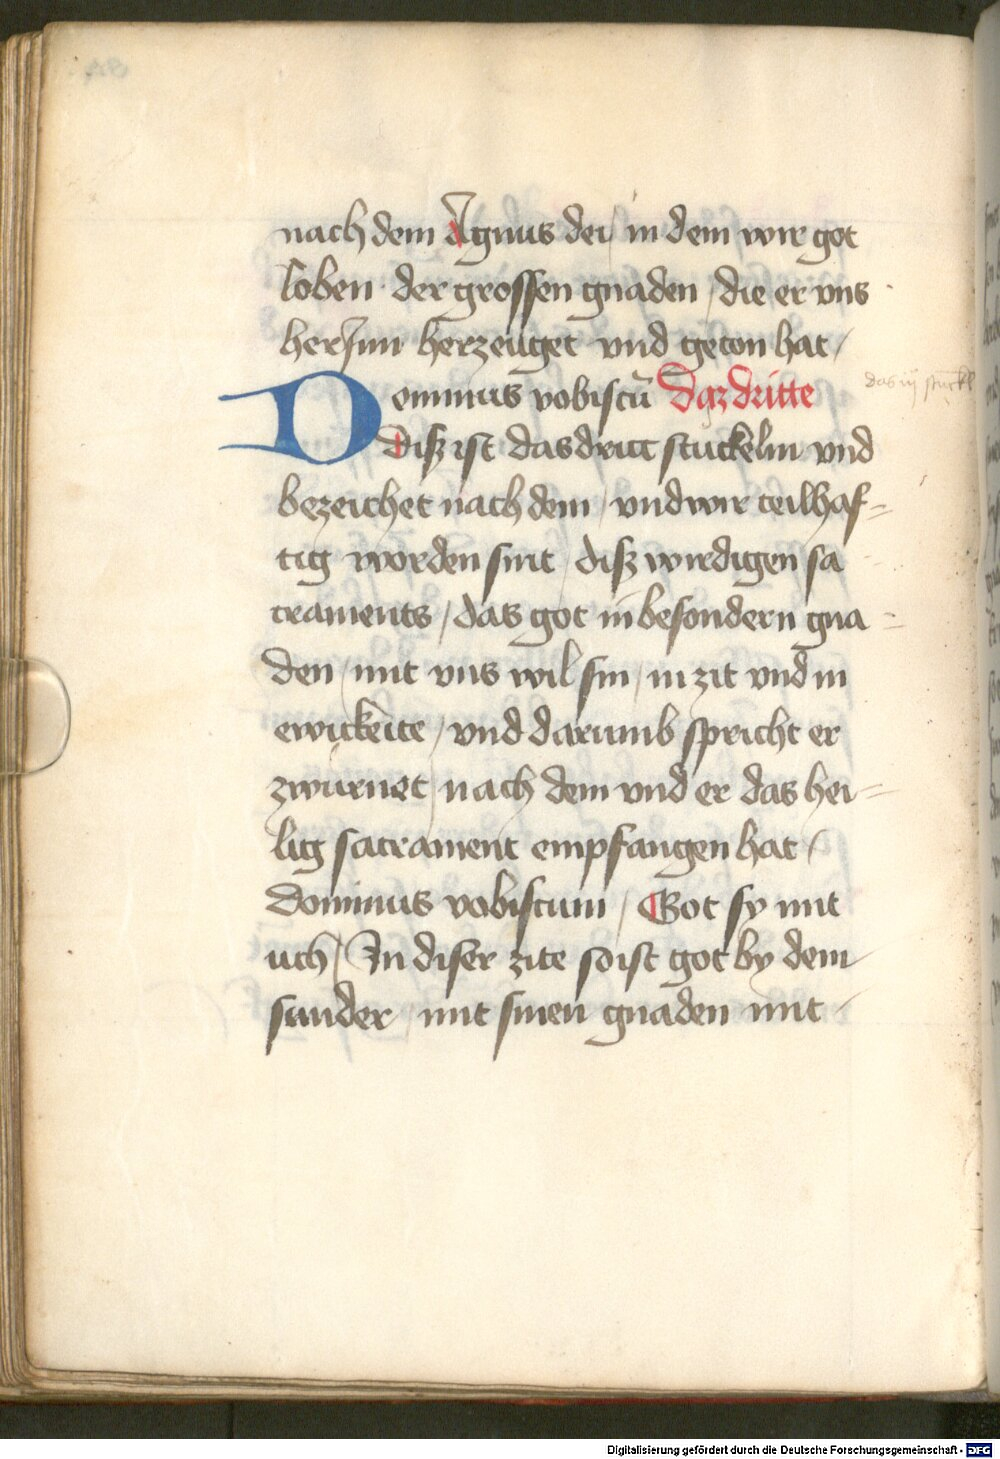 nach dem Agnus dei / in dem wir got
loben der grossen gnaden / die er vns
herJnn herzeuget vnd geton hat /
Dominus vobiscū Daz dritte
das iij stückl
Disz ist das dritt stuckelin vnd
bezeichet nach dem / vnd wir teilhaf=
tig worden sint / disz wirdigen sa
craments / das got in besondern gna
den / mit vns wil sin / in zit vnd in
ewickeite / vnd darumb spricht er
zwurnet / nach dem vnd er das hei=
lig sacrament empfangen hat /
dominus vobiscum / Got sy mit
uch / In diser zite so ist got by dem
sunder / mit sinen gnaden mit
Digitalisierung gefördert durch die Deutsche Forschungsgemeinschaft - DFG